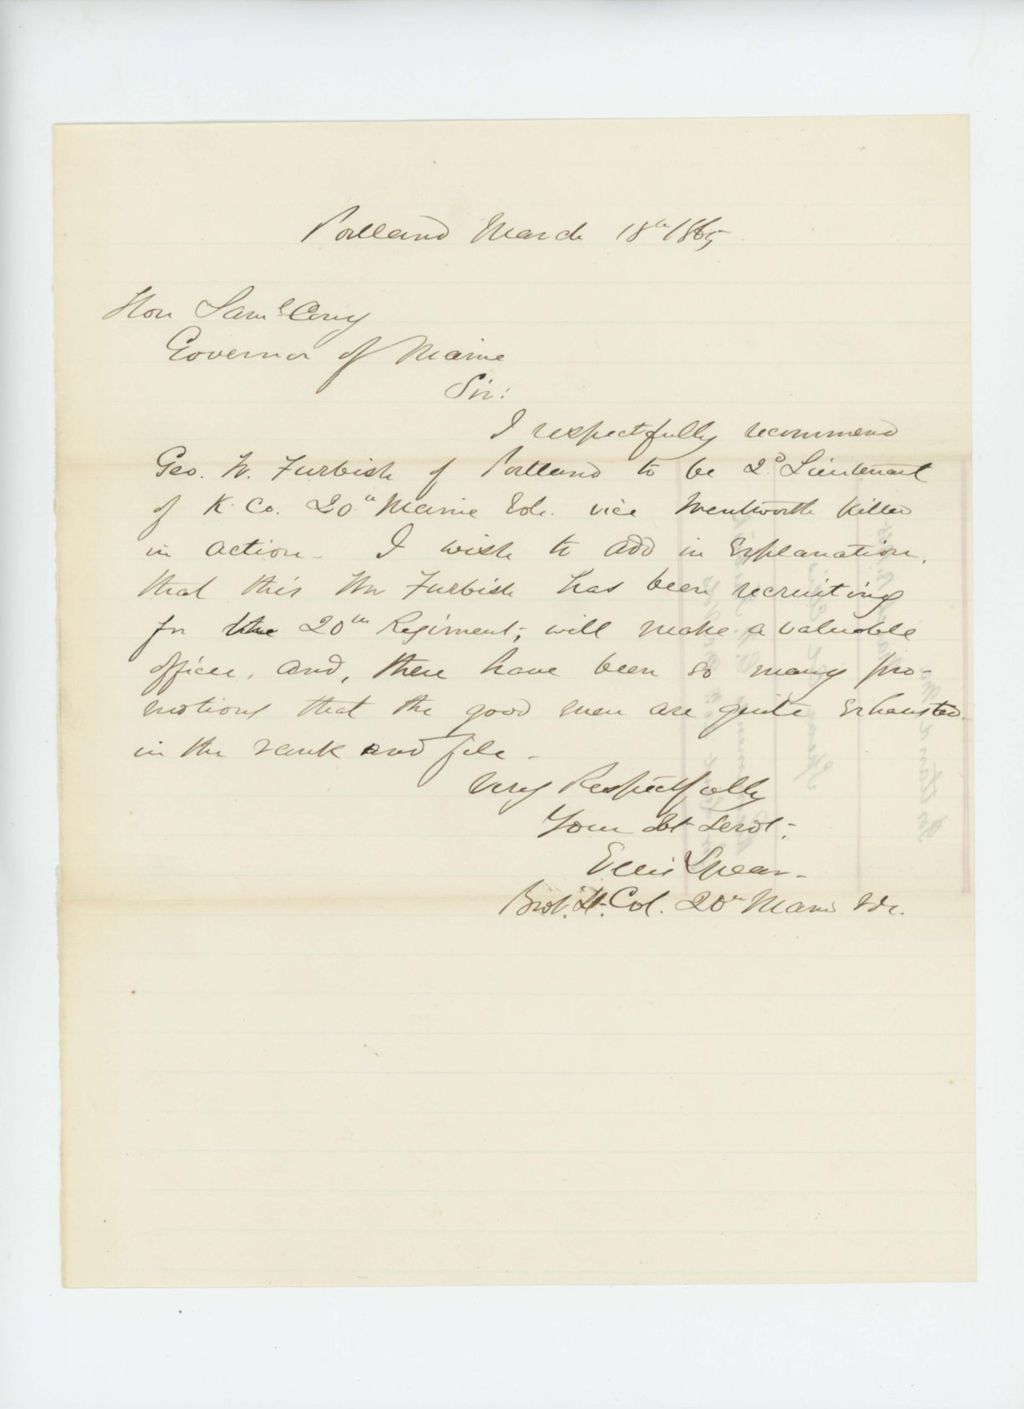 Portland March 18th 1865
Hon Saml Cony
Governor of Maine
Sir:
I respectfully recommend
Geo. W. Furbish of Portland to be 2d Lieutenant
of K. Co. 20th Maine Vols. vice Wentworth killed
in action. I wish to add in Explanation,
that this Mr Furbish has been recruiting
for the 20th Regiment, will make a valuable
officer, and, there have been so many pro-
motions that the good men are quite Exhausted
in the rank and file.
Very Respectfully
Your Obt Servt.
Ellis Spear
Brvt. Lt. Col. 20th Maine Vols.